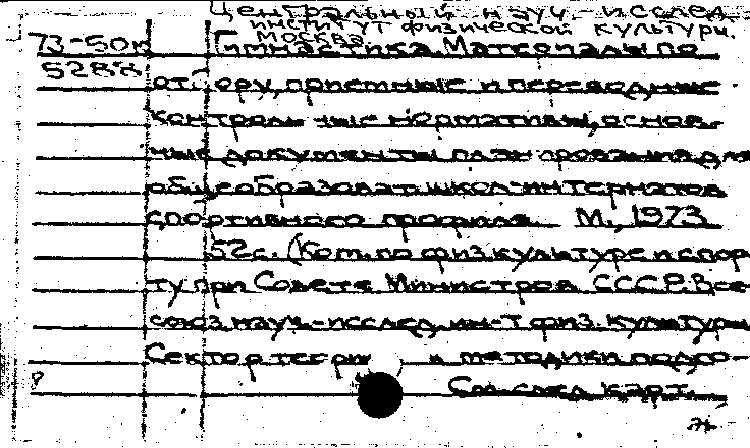 Центральный науч.-исслед.
институт физической культуры.
Москва
73-50к Гимнастика. Материалы по
5288 отбору, приемные и переводные
контрольные нормативы, основ-
ные документы планирования для
общеобразоват. школ-интернатов
спортивного профиля. М., 1973
52с. (Ком. по физ. культуре и спор-
ту при Совете Министров СССР. Все-
союз. науч.-исслед. ин-т физ. культуры
Сектор теории и методики подго-
См. след. карт.